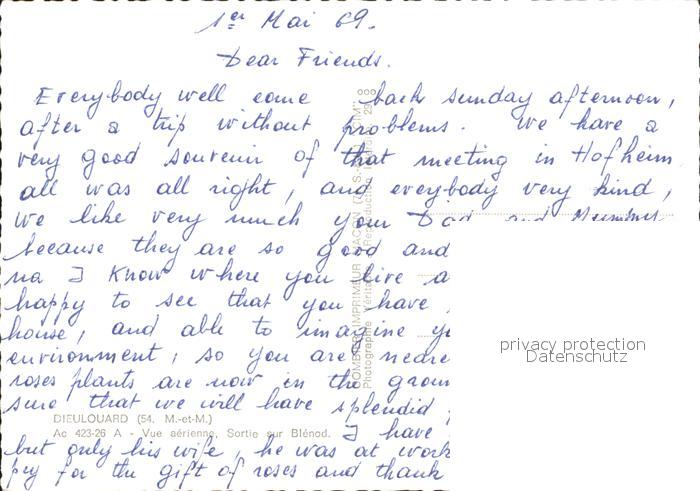 1er Mai 69.
Dear Friends.
Everybody well come back sunday afternoon,
after a trip without problems. We have a
very good souvenir of that meeting in Hofheim
all was all right, and everybody very kind,
we like very much your Dad and Mummy
because they are so good and
na I know where you live a
happy to see that you have
house, and able to imagine yo
environment, so you are neare
roses plants are now in the groun
sure that we will have splendid
I have
but only his wife, he was at work
pry for the gift of roses and thank
DIEULOUARD (54. M.-et-M.)
Ac 423-26 A - Vue aérienne. Sortie sur Blénod.
COMBIER IMPRIMEUR MACON
Photographie Véritable Reproduction
privacy protection
Datenschutz